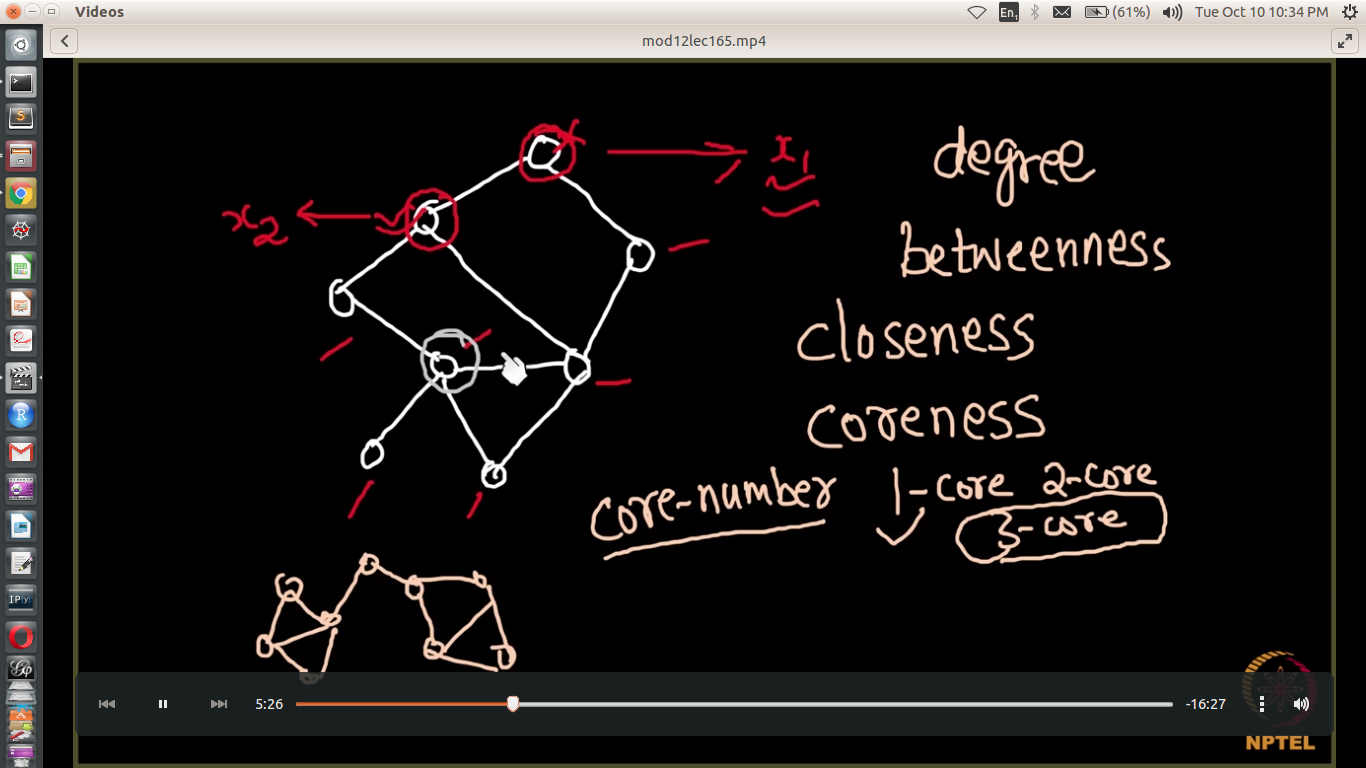 Videos
En1
(61%)
Tue Oct 10 10:34 PM
mod12lec165.mp4
x1
x2
degree
betweenness
closeness
coreness
core-number 1-core 2-core
3-core
5:26
-16:27
NPTEL